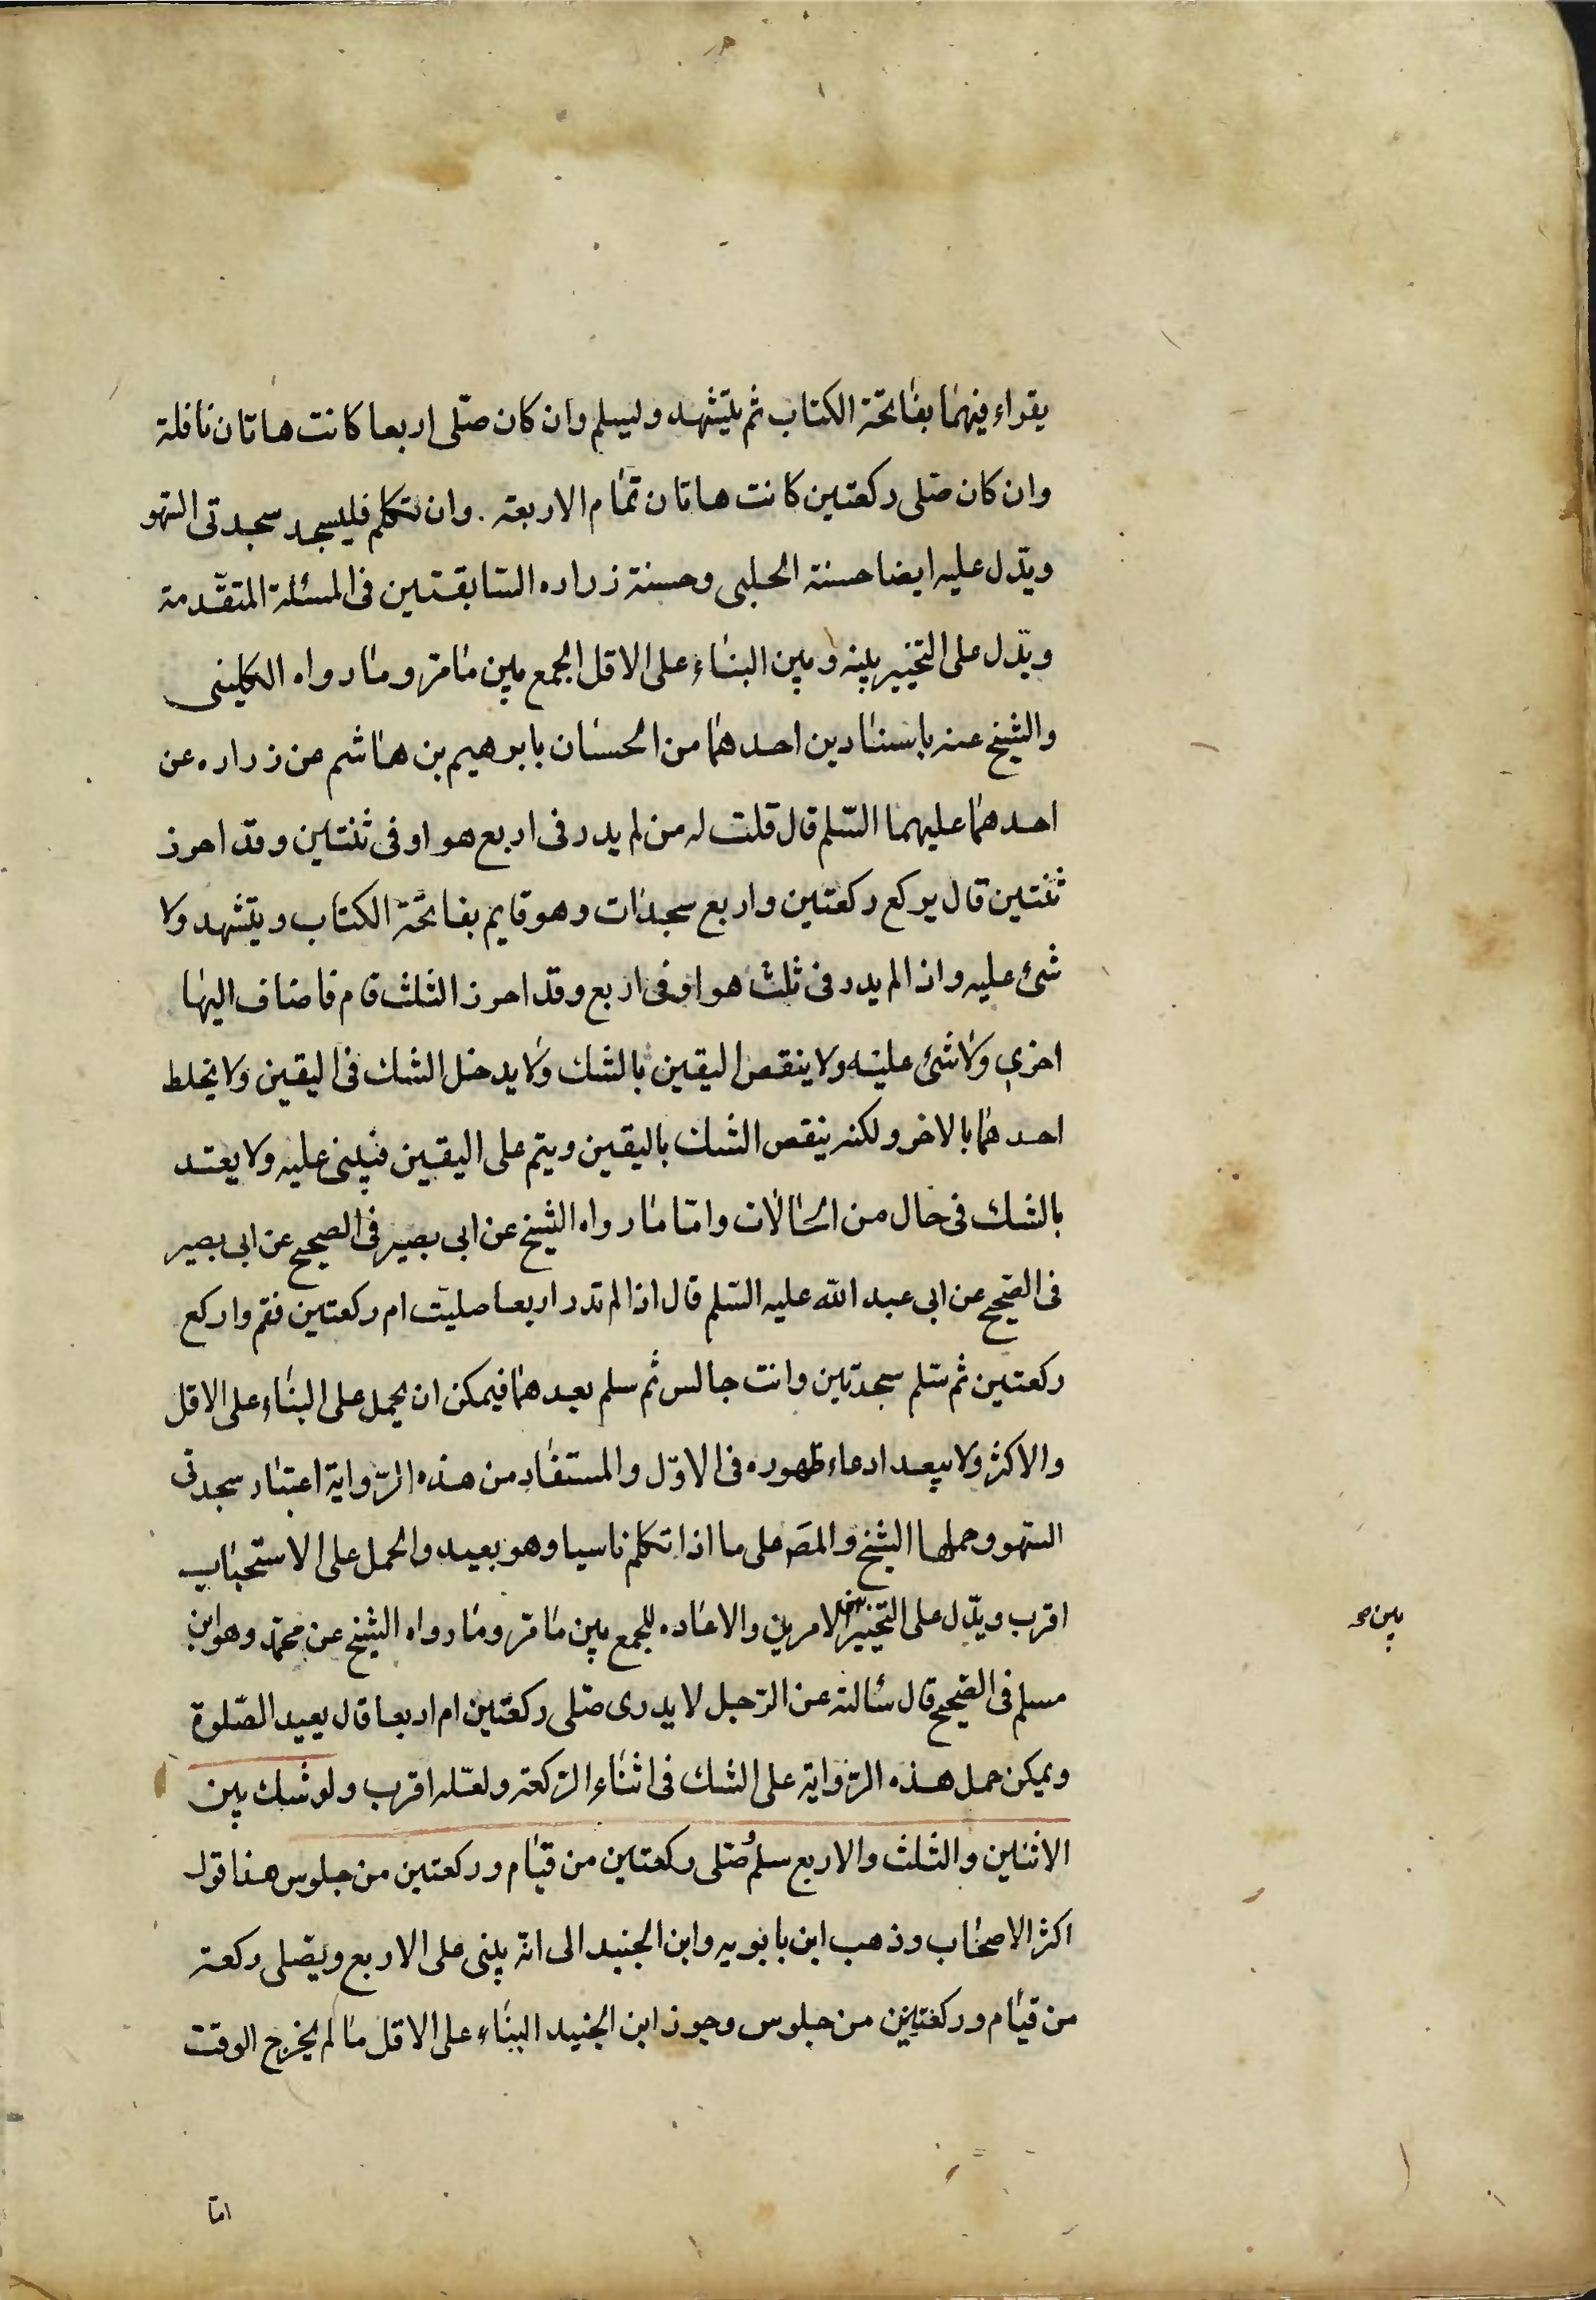 يقراء فيهما بفاتحة الكتاب ثم يتشهد وليسلم وان كان صلّى اربعا كانت هاتان نافلة
وان كان صلى ركعتين كانت هاتان تمام الاربعة . وان تكلم فليسجد سجدتى السّهو
ويدّل عليه ايضا حسنة الحلبى وحسنة زراره السّابقتين فى المسئلة المتقدّمة
ويدّل على التخيير بينه وبين البناء على الاقل الجمع بين ما مرّ وما رواه الكلينى
والشيخ عنه باسنادين احدهما من الحسان بابرهيم بن هاشم عن زراره عن
احدهما عليهما السّلم قال قلت له من لم يدر فى اربع هو او فى ثنتين وقد احرز
ثنتين قال يركع ركعتين واربع سجدات وهو قايم بفاتحة الكتاب ويتشهد ولا
شئ عليه واذا لم يدر فى ثلث هو او فى اربع وقد احرز الثلث قام فاضاف اليها
اخرى ولا شئ عليه ولا ينقص اليقين بالشك ولا يدخل الشك فى اليقين ولا يخلط
احدهما بالاخر ولكنه ينقص الشك باليقين ويتم على اليقين فيبنى عليه ولا يعتد
بالشك فى حال من الحالات وامّا ما رواه الشيخ عن ابى بصير فى الصحيح عن ابى بصير
فى الصّحيح عن ابى عبد الله عليه السّلم قال اذا لم تدر اربعا صليت ام ركعتين فقم واركع
ركعتين ثم سّلم سجدتين وانت جالس ثم سلم بعدهما فيمكن ان يحمل على البناء على الاقل
والاكثر ولا يبعد ادعاء ظهوره فى الاوّل والمستفاد من هذه الرّواية اعتبار سجدتى
السّهو وحملها الشيخ والمصَ على ما اذا تكلم ناسيا وهو بعيد والحمل على الاستحباب
اقرب ويدّل على التخيير الامرين والاعاده للجمع بين ما مّر وما رواه الشيخ عن محمّد وهو ابن
بين صح
مسلم فى الصّحيح قال سئالته عن الرّجل لا يدرى صّلى ركعتين ام اربعا قال يعيد الصّلوة
ويمكن حمل هذه الرّواية على الشك فى اثناء الرّكعة ولعّله اقرب ولو شك بين
الاثنين والثلث والاربع سلم وصّلى ركعتين من قيام وركعتين من جلوس هذا قول
اكثر الاصحاب وذهب ابن بابويه وابن الجنيد الى انّه يبنى على الاربع ويصّلى ركعة
من قيام وركعتين من جلوس وجوز ابن الجنيد البناء على الاقل ما لم يخرج الوقت
امّا